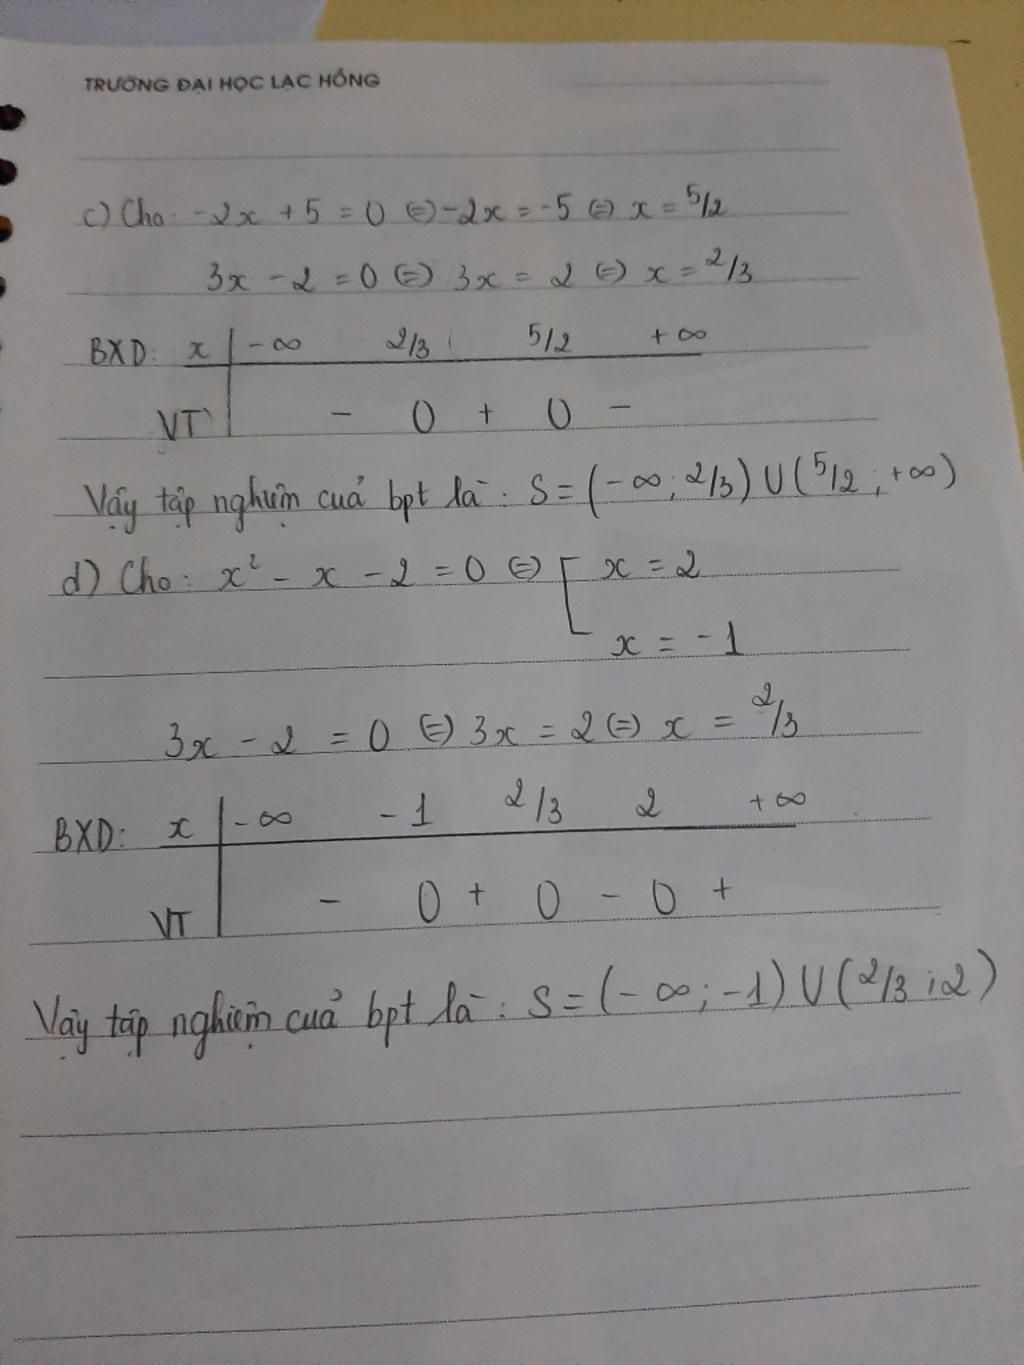 TRƯỜNG ĐẠI HỌC LẠC HỒNG
c) Cho: -2x + 5 = 0 (=) -2x = -5 (=) x = 5/2
3x - 2 = 0 (=) 3x = 2 (=) x = 2/3
BXD: x | -∞ 2/3 5/2 +∞
VT | - 0 + 0 -
Vậy tập nghiệm cuả bpt là: S = (-∞; 2/3) U (5/2; +∞)
d) Cho: x² - x - 2 = 0 (=) [ x = 2
x = -1
3x - 2 = 0 (=) 3x = 2 (=) x = 2/3
BXD: x | -∞ -1 2/3 2 +∞
VT | - 0 + 0 - 0 +
Vậy tập nghiệm cuả bpt là: S = (-∞; -1) U (2/3; 2)